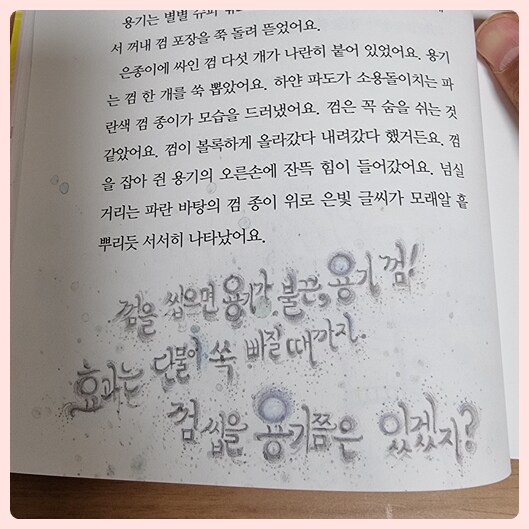 용기는 별별 슈퍼
서 꺼내 껌 포장을 쭉 돌려 뜯었어요.
은종이에 싸인 껌 다섯 개가 나란히 붙어 있었어요. 용기
는 껌 한 개를 쑥 뽑았어요. 하얀 파도가 소용돌이치는 파
란색 껌 종이가 모습을 드러냈어요. 껌은 꼭 숨을 쉬는 것
같았어요. 껌이 볼록하게 올라갔다 내려갔다 했거든요. 껌
을 잡아 쥔 용기의 오른손에 잔뜩 힘이 들어갔어요. 넘실
거리는 파란 바탕의 껌 종이 위로 은빛 글씨가 모래알 흩
뿌리듯 서서히 나타났어요.
껌을 씹으면 용기가 불끈, 용기 껌!
효과는 단물이 쏙 빠질 때까지.
껌 씹을 용기쯤은 있겠지?